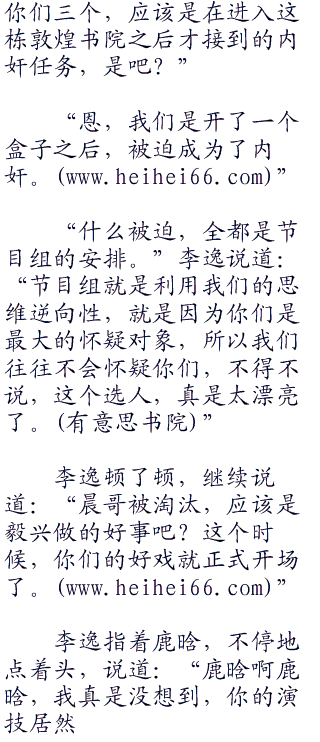 你们三个，应该是在进入这
栋敦煌书院之后才接到的内
奸任务，是吧？”
“恩，我们是开了一个
盒子之后，被迫成为了内
奸。(www.heihei66.com)”
“什么被迫，全都是节
目组的安排。”李逸说道：
“节目组就是利用我们的思
维逆向性，就是因为你们是
最大的怀疑对象，所以我们
往往不会怀疑你们，不得不
说，这个选人，真是太漂亮
了。(有意思书院)”
李逸顿了顿，继续说
道：“晨哥被淘汰，应该是
毅兴做的好事吧？这个时
候，你们的好戏就正式开场
了。(www.heihei66.com)”
李逸指着鹿晗，不停地
点着头，说道：“鹿晗啊鹿
晗，我真是没想到，你的演
技居然